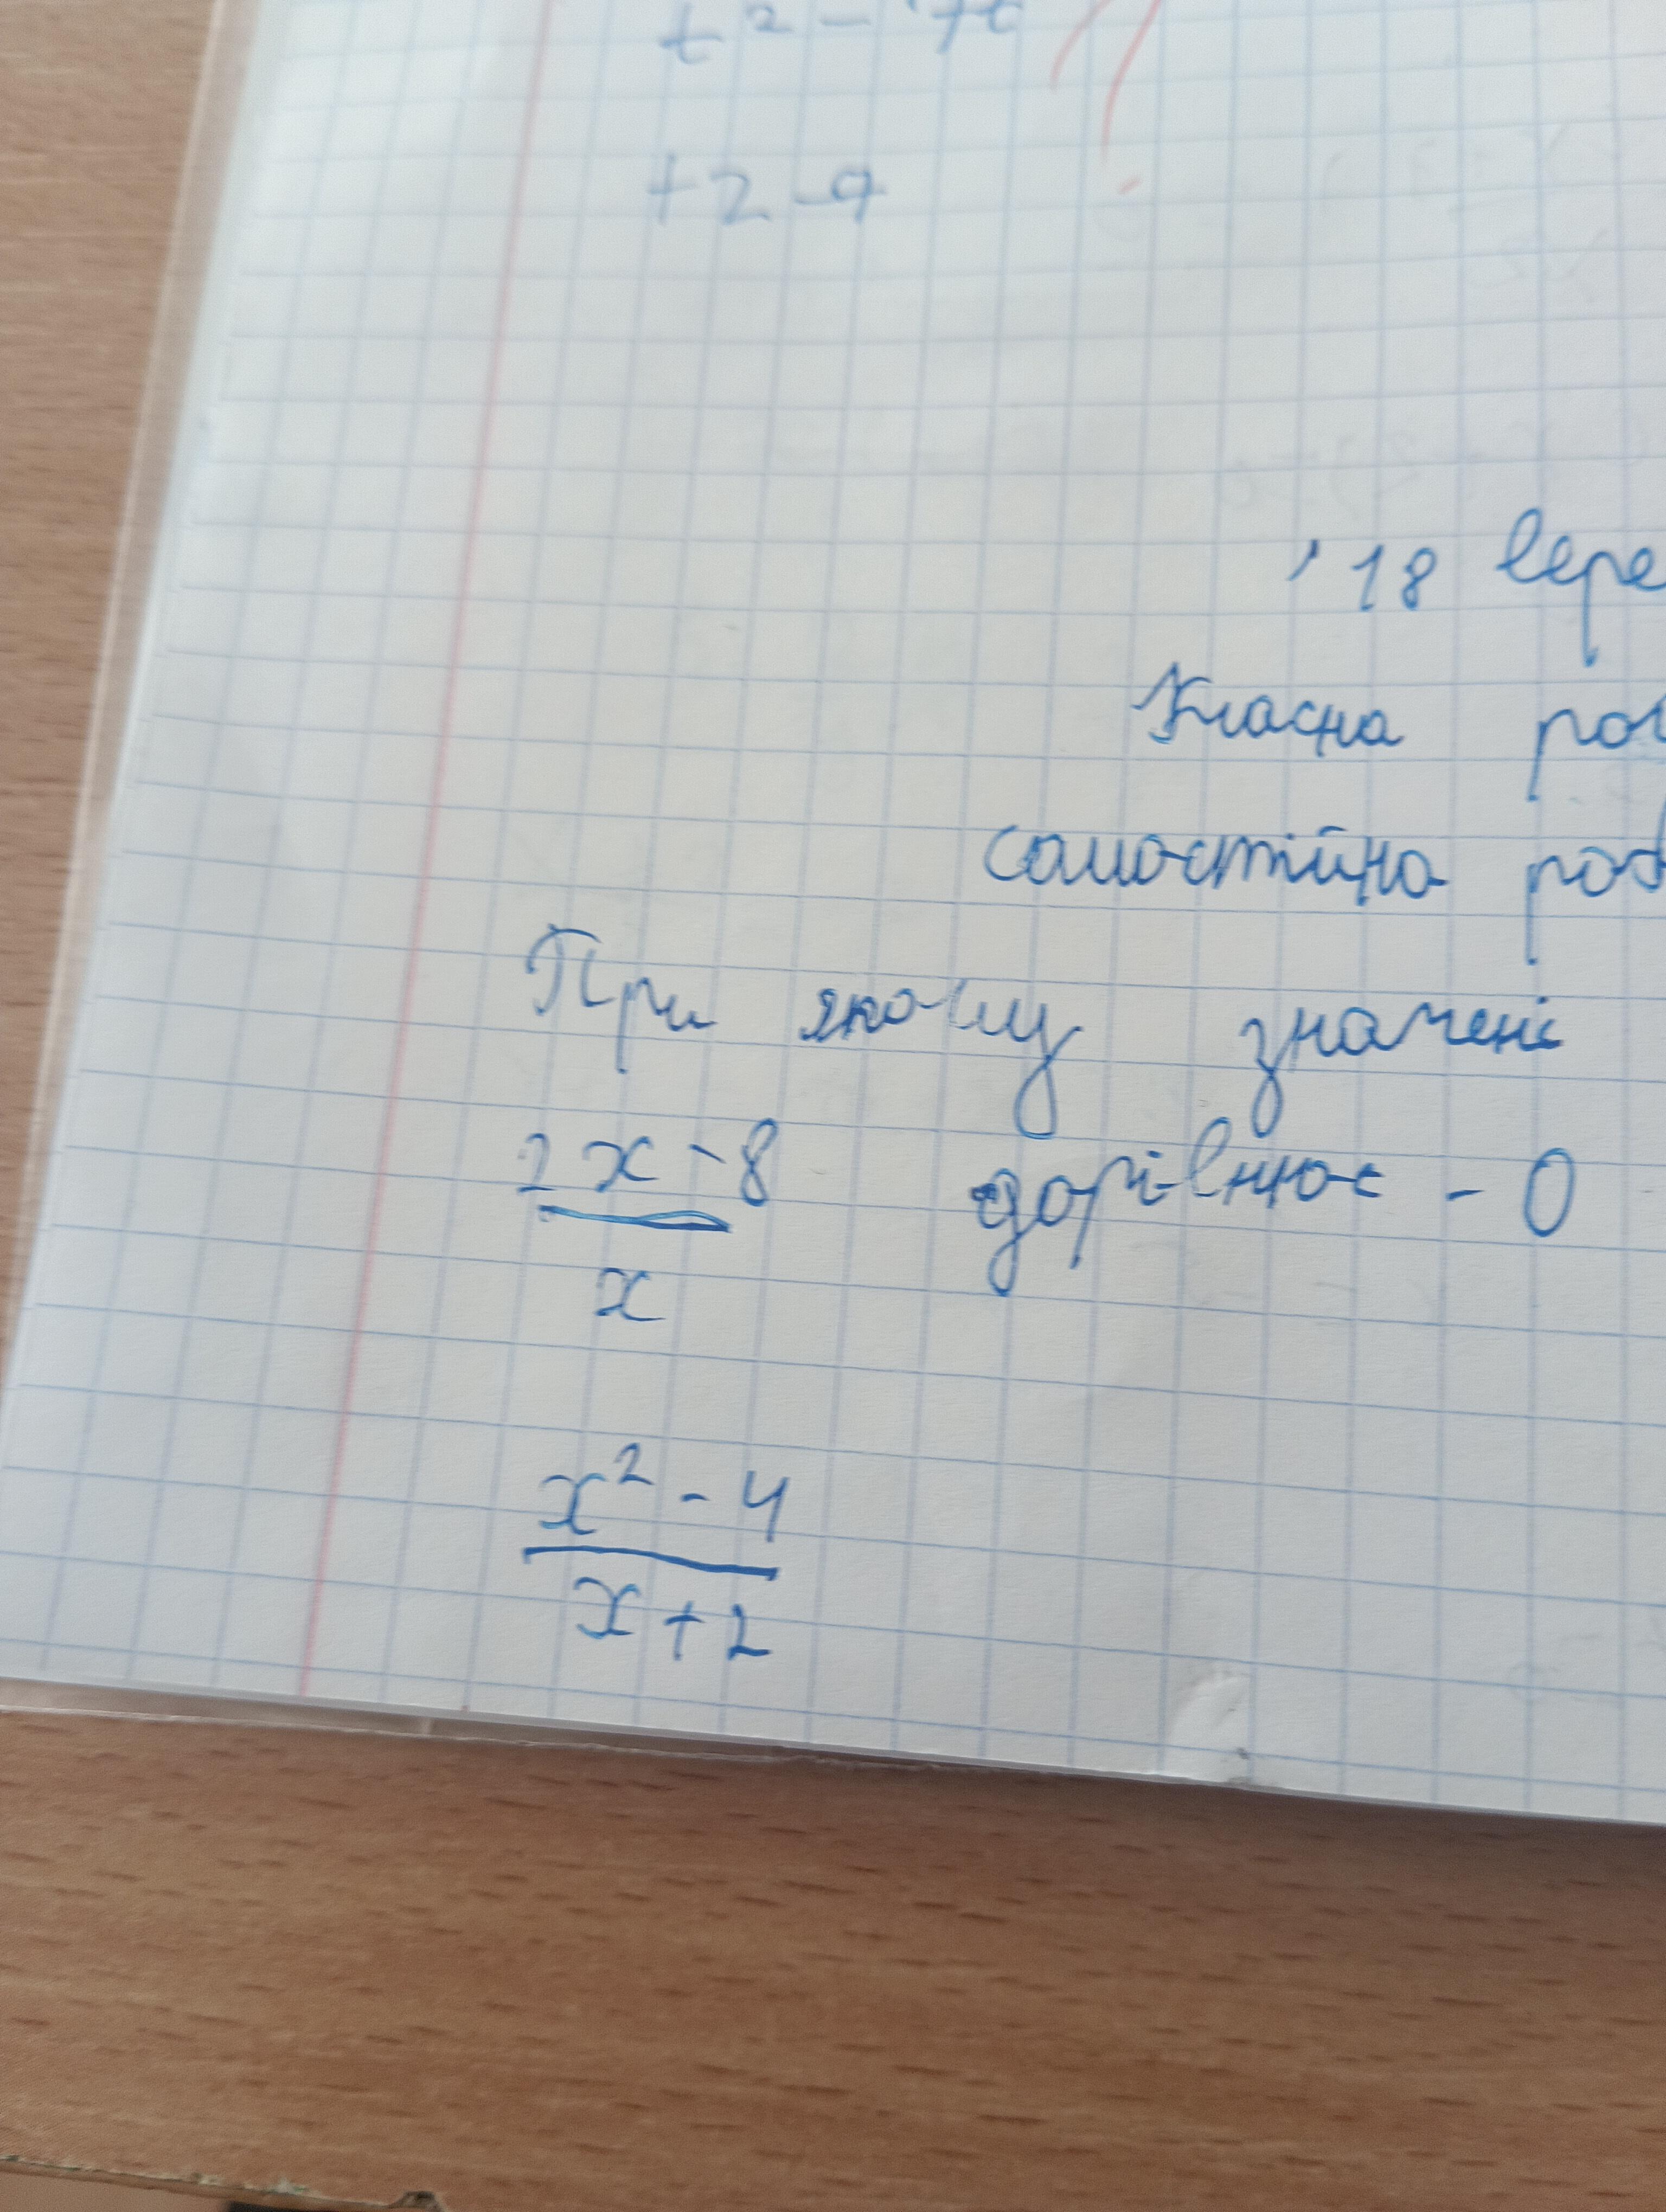 t² - 7t
+2 - 9
18 вере
Класна роб
самостійна роб
При якому значені
2x - 8 дорівнює - 0
x
x² - 4
x + 2